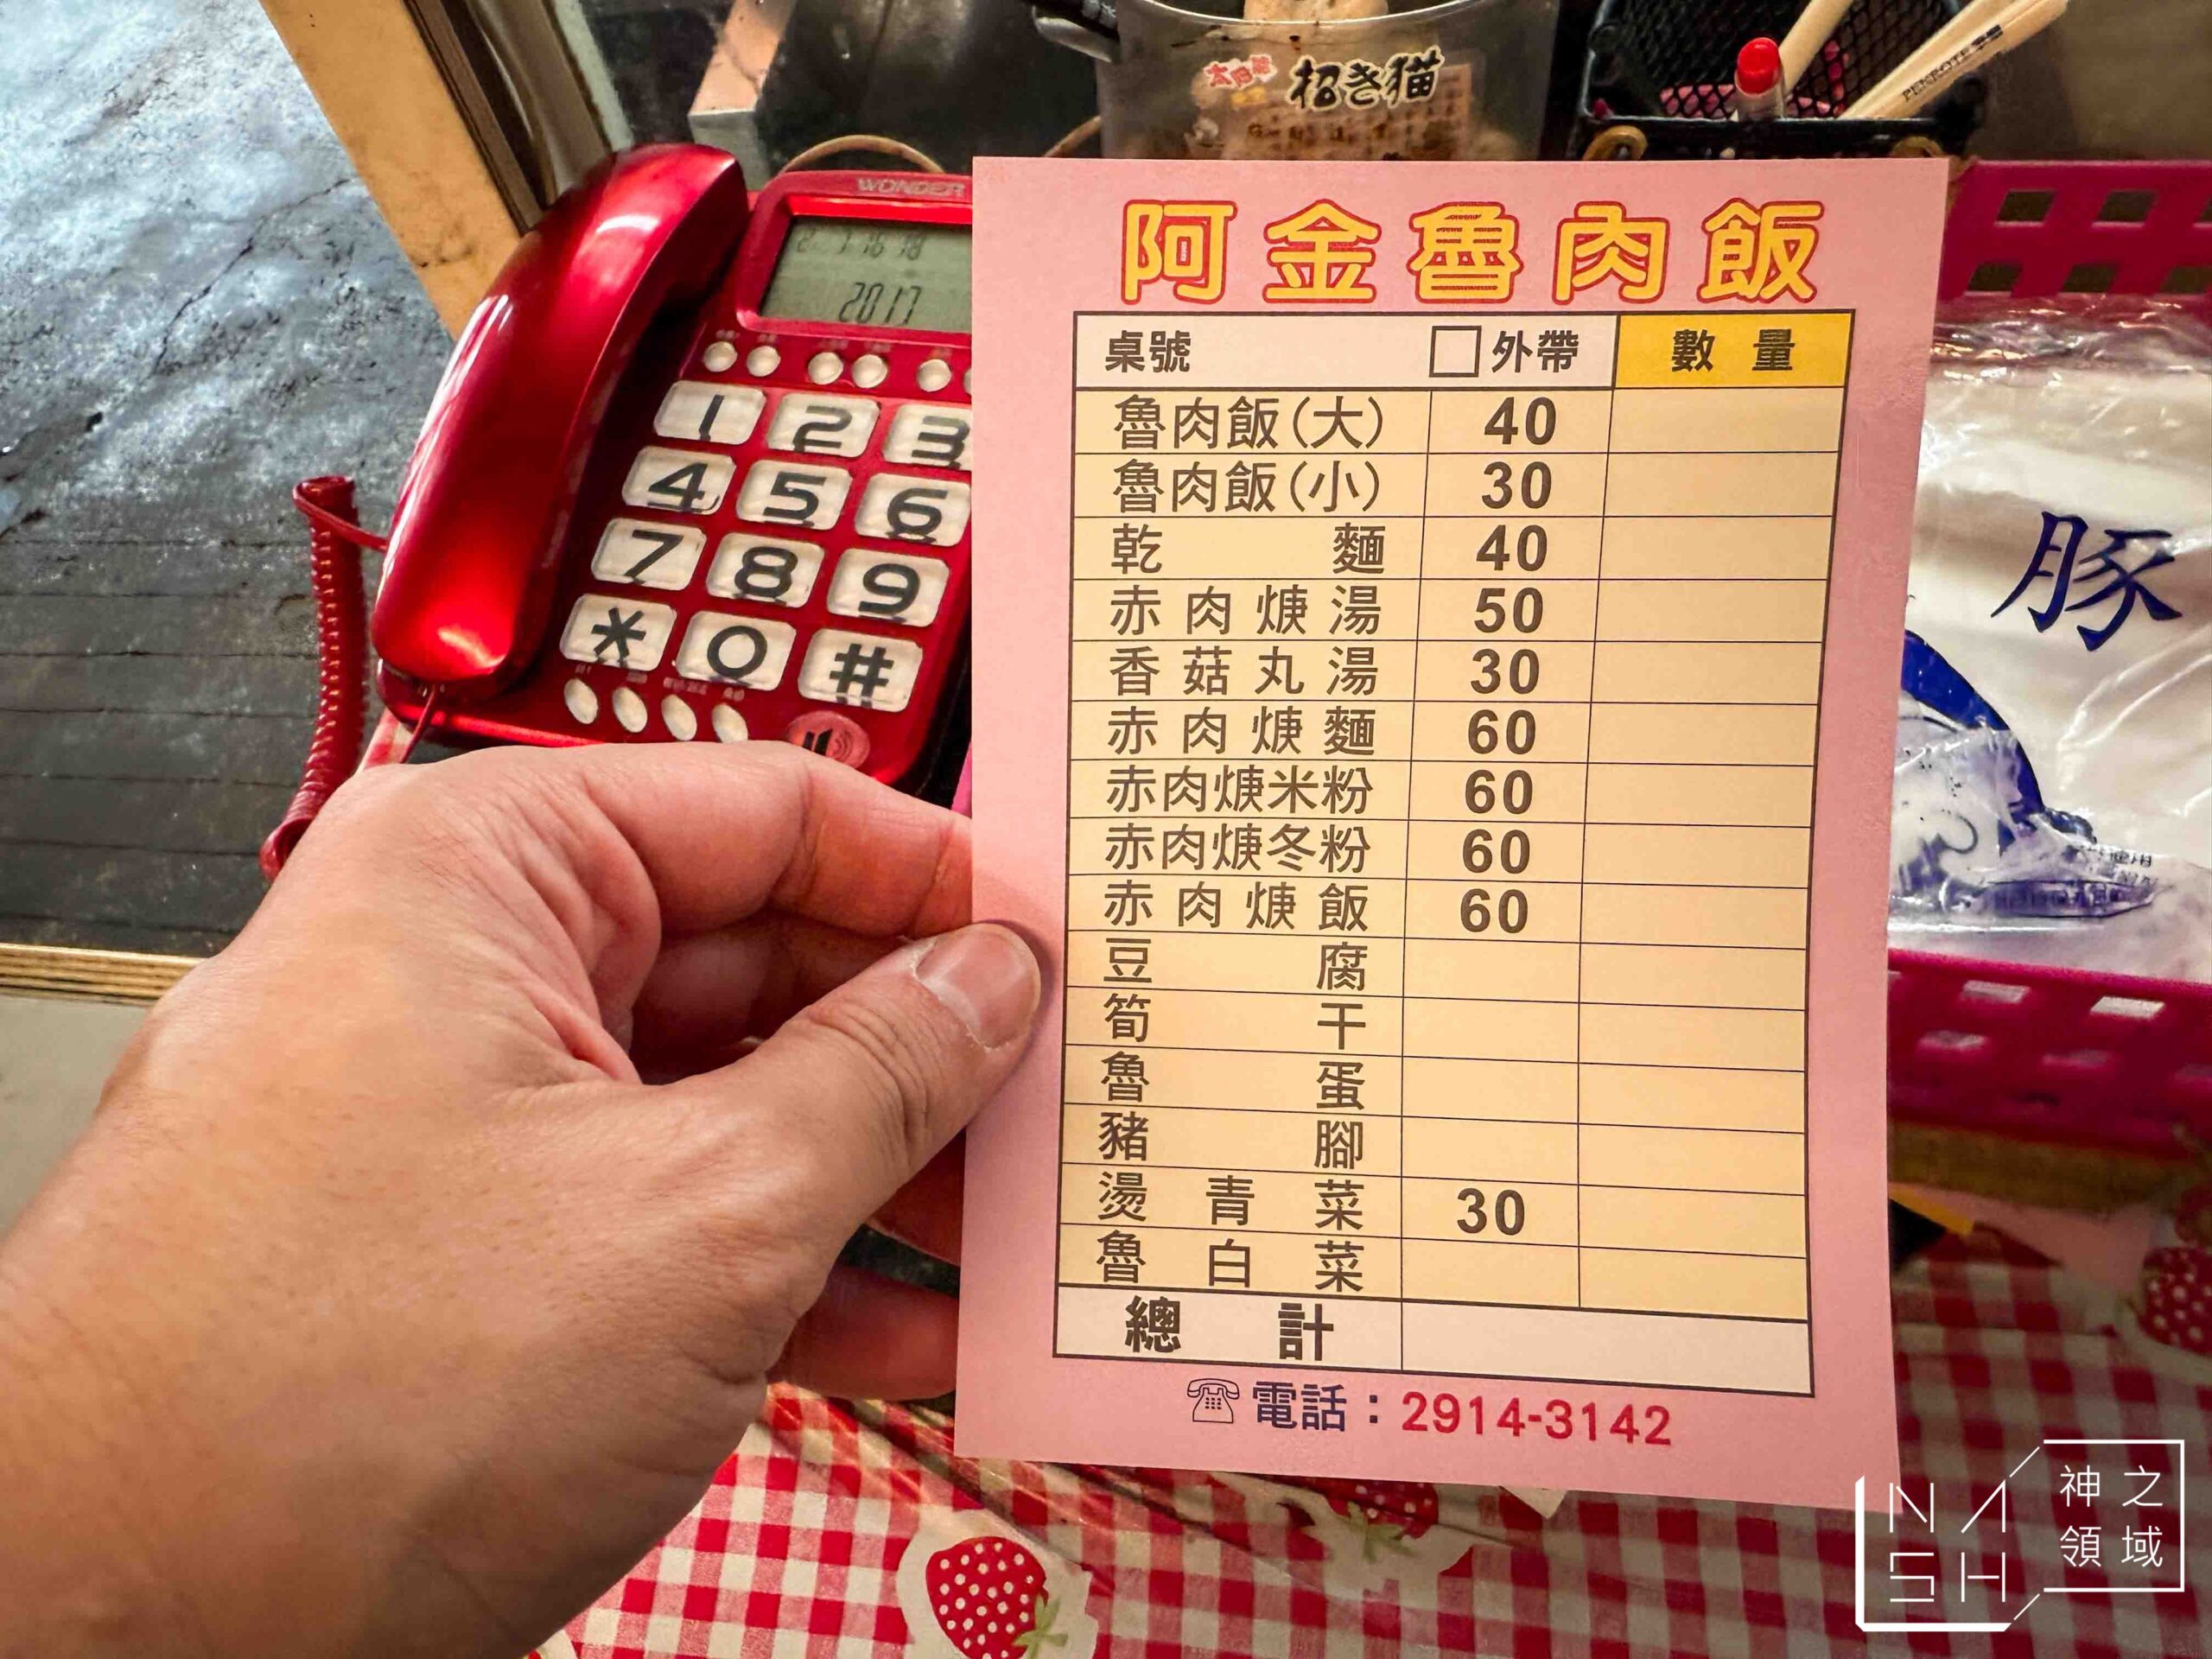 招き猫
PENROTE
WONDER
2017
1 2 3
4 5 6
7 8 9
* 0 #
阿金魯肉飯
桌號 □外帶 數量
魯肉飯(大) 40
魯肉飯(小) 30
乾麵 40
赤肉焿湯 50
香菇丸湯 30
赤肉焿麵 60
赤肉焿米粉 60
赤肉焿冬粉 60
赤肉焿飯 60
豆腐
筍干
魯蛋
豬腳
燙青菜 30
魯白菜
總計
☏電話：2914-3142
豚
NASH
神之
領域